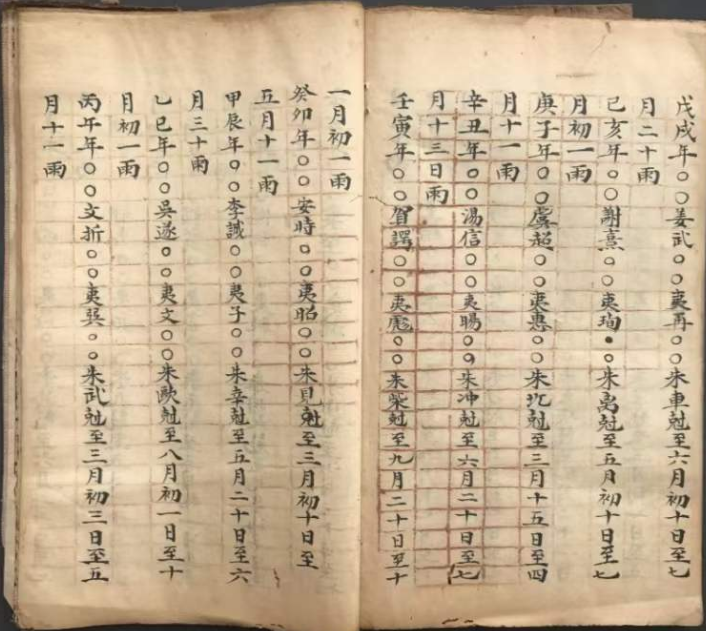 戊戌年○○姜武○○夷再○○朱車尅至六月初十日至七
月二十雨
己亥年○○謝熹○○夷珣●○朱禹尅至五月初十日至七
月初一雨
庚子年○○虞超○○夷惠○○朱坎尅至三月十五日至四
月十一雨
辛丑年○○湯信○○夷暘○○朱冲尅至六月二十日至七
月十三日雨
壬寅年○○賀諤○○夷彪○○朱柴尅至九月二十日至十
一月初一雨
癸卯年○○安時○○夷昭○○朱見尅至三月初十日至
五月十一雨
甲辰年○○李誠○○夷子○○朱幸尅至五月二十日至六
月三十雨
乙巳年○○吳遂○○夷文○○朱歐尅至八月初一日至十
月初一雨
丙午年○○文折○○夷巽○○朱武尅至三月初三日至五
月十一雨